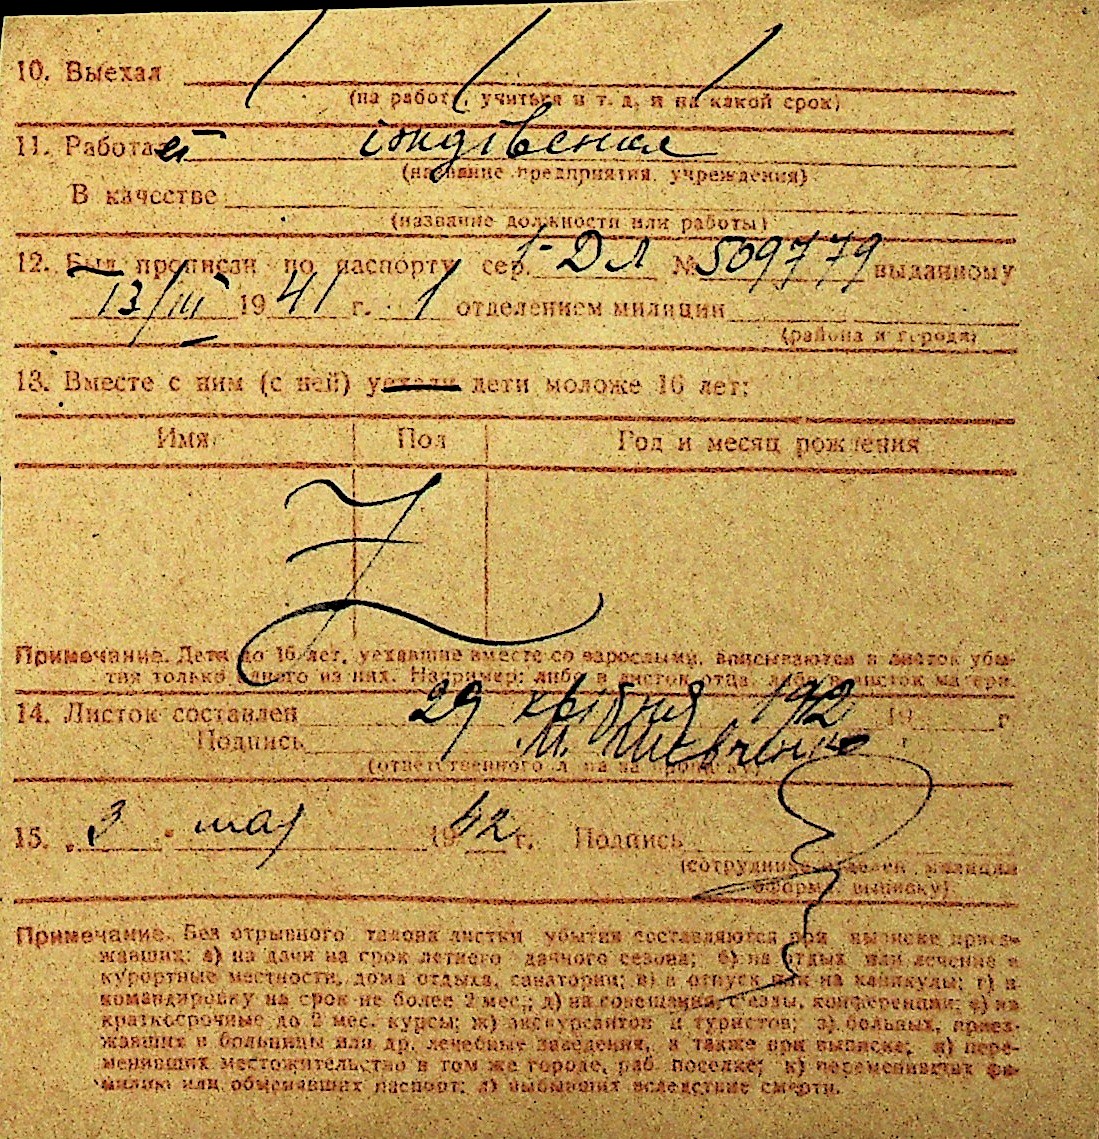 10. Выехал
(на работу, учиться и т. д. и на какой срок)
11. Работает
(название предприятия, учреждения)
В качестве
(название должности или работы)
12. Был прописан по паспорту сер. 1-ДЛ № 509779 выданному
13/III 1941 г. 1 отделением милиции
(района и города)
13. Вместе с ним (с ней) уехали дети моложе 16 лет:
Имя Пол Год и месяц рождения
Z
Примечание. Дети до 16 лет, уехавшие вместе со взрослыми, вписываются в листок убы-
тия только одного из них. Например: либо в листок отца, либо в листок матери.
14. Листок составлен 29 квітня 1942 19 г
Подпись М. Шевченко
(ответственного лица за прописку)
15. „3" мая 1942 г. Подпись
(сотрудника отделен. милиции
оформ. выписку)
Примечание. Без отрывного талона листки убытия составляются при выписке приез-
жавших: а) на дачи на срок летнего дачного сезона; б) на отдых или лечение в
курортные местности, дома отдыха, санатории; в) в отпуск или на каникулы; г) в
командировку на срок не более 2 мес.; д) на совещания, съезды, конференции; е) на
краткосрочные до 2 мес. курсы; ж) экскурсантов и туристов; з) больных, приез-
жавших в больницы или др. лечебные заведения, а также при выписке: и) пере-
менивших местожительство в том же городе, раб. поселке; к) переменивших фа-
милию или обменявших паспорт; л) выбывших вследствие смерти.